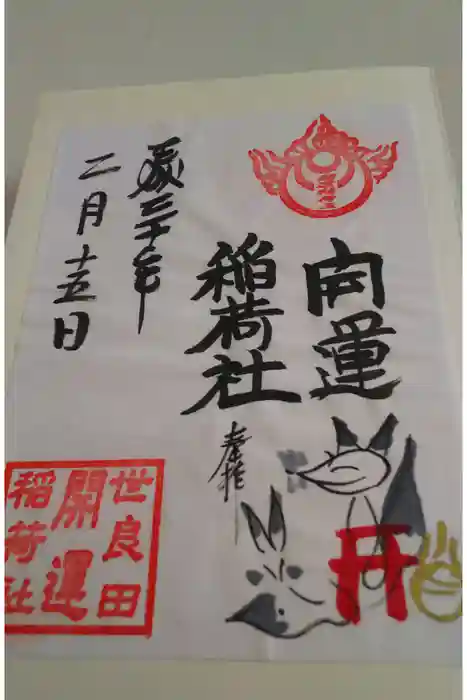 開運
稲荷社
奉拝
平成三十年
二月十五日
世良田
開運
稲荷社